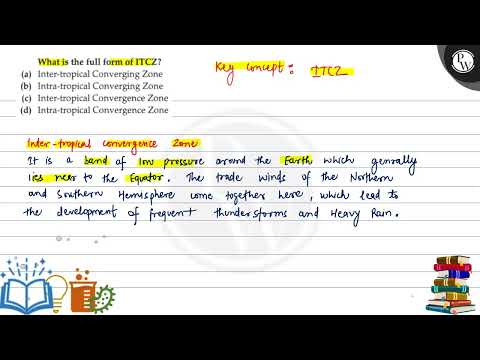 What is the full form of ITCZ?
(a) Inter-tropical Converging Zone
(b) Intra-tropical Converging Zone
(c) Inter-tropical Convergence Zone
(d) Intra-tropical Convergence Zone
Key concept: ITCZ
Inter-tropical convergence Zone
It is a band of low pressure around the Earth which generally
lies near to the Equator. The trade winds of the Northern
and Southern Hemisphere come together here, which lead to
the development of frequent thunderstorms and Heavy Rain.